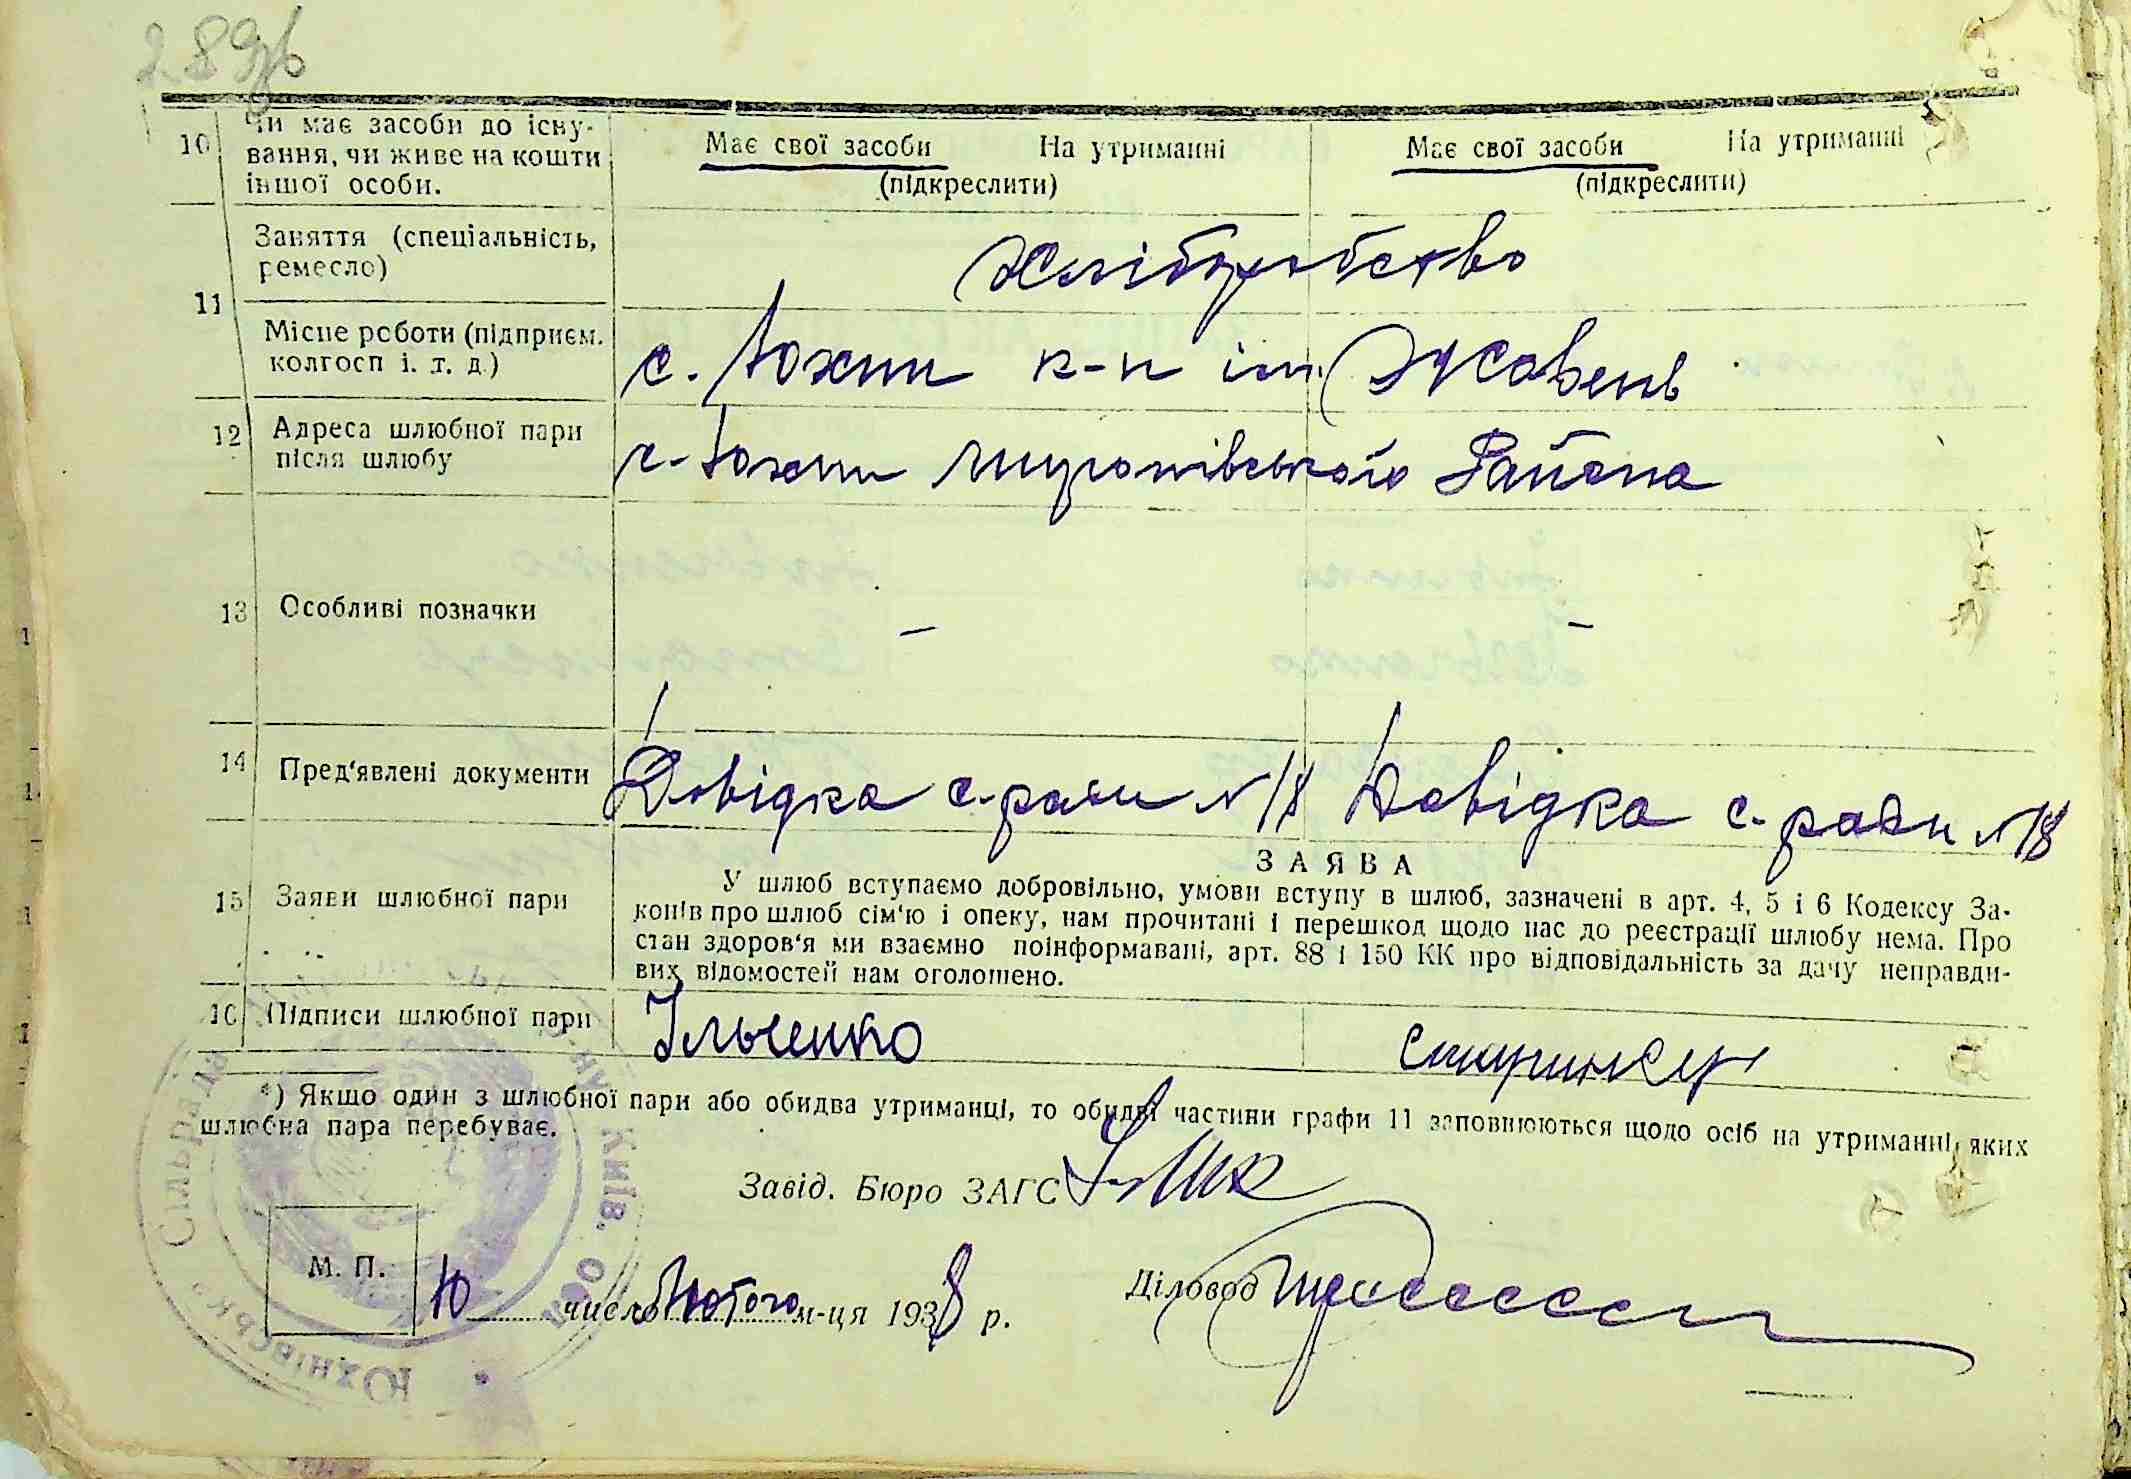 289зв
10 Чи має засоби до існу-
вання, чи живе на кошти
іншої особи.
Має свої засоби На утриманні
(підкреслити)
Має свої засоби На утриманні
(підкреслити)
11 Заняття (спеціальність,
ремесло)
Хліборобство
Місце роботи (підприєм.
колгосп і. т. д.)
с. Юхни к-п ім. Жовтень
12 Адреса шлюбної пари
після шлюбу
с. Юхни Миронівського Района
13 Особливі позначки
–
–
14 Пред'явлені документи
Довідка с-ради № 18 Довідка с-ради № 18
15 Заяви шлюбної пари
ЗАЯВА
У шлюб вступаємо добровільно, умови вступу в шлюб, зазначені в арт. 4, 5 і 6 Кодексу За-
конів про шлюб сім'ю і опеку, нам прочитані і перешкод щодо нас до реєстрації шлюбу нема. Про
стан здоров'я ми взаємно поінформавані, арт. 88 і 150 КК про відповідальність за дачу неправди-
вих відомостей нам оголошено.
16 Підписи шлюбної пари
Ільченко
*) Якщо один з шлюбної пари або обидва утриманці, то обидві частини графи 11 заповнюються щодо осіб на утриманні, яких
шлюбна пара перебуває.
Завід. Бюро ЗАГС
М. П.
10 число Лютого м-ця 1938 р.
Діловод
Юхнівська Сільрада
Київ. Обл.